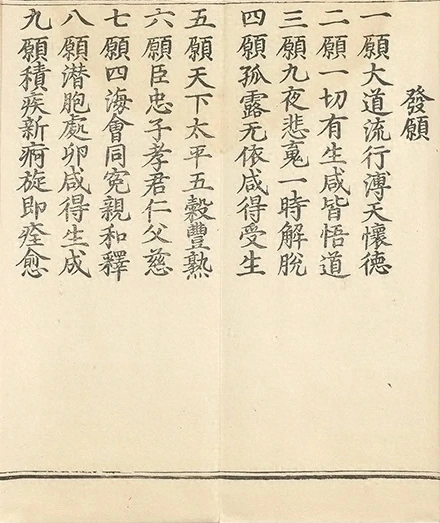 發願
一願大道流行溥天懷德
二願一切有生咸皆悟道
三願九夜悲䰟一時解脫
四願孤露无依咸得受生
五願天下太平五穀豐熟
六願臣忠子孝君仁父慈
七願四海會同寃親和釋
八願潛胞處卵咸得生成
九願積疾新痾旋即痊愈